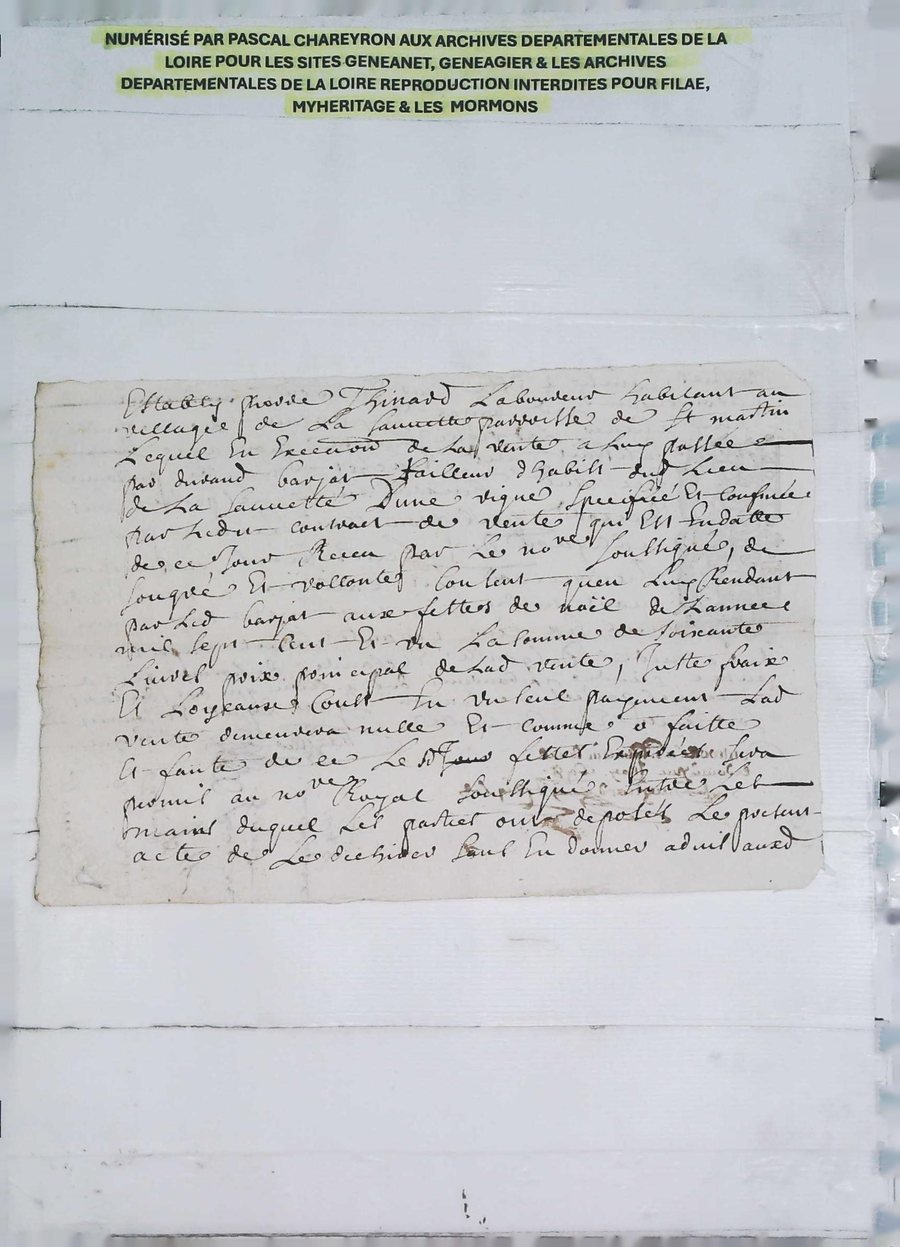 NUMÉRISÉ PAR PASCAL CHAREYRON AUX ARCHIVES DEPARTEMENTALES DE LA
LOIRE POUR LES SITES GENEANET, GENEAGIER & LES ARCHIVES
DEPARTEMENTALES DE LA LOIRE REPRODUCTION INTERDITES POUR FILAE,
MYHERITAGE & LES MORMONS
Estably pierre Thinard Laboureur habitant au
village de La Sauvette parroisse de St martin
Lequel En Execution de La vente a Luy passée
par durand barjat tailleur dhabist dud Lieu
de La Sauvette Dune vigne Speciffié Et Confinée
par Ledit contract de vente qui Est En datte
de ce Jour Receu par Le nore Soussigné, de
Songré Et vollonté Consent quen Luy Rendant
par Led barjat aux fettes de noël de Lannée
mil sept Cent Et un La somme de soixante
Livres prix principal de Lad vente, Juste fraix
Et Loyeaux Coust En un seul payement Lad
vente demeurera nulle Et comme non faitte
Et faute de ce Led Jour fettes Expirées Sera
permis au nore Royal Soussigné Entre Les
mains duquel Les parties ont deposés Le present
acte de Le dechirer sans En donner advis auxd